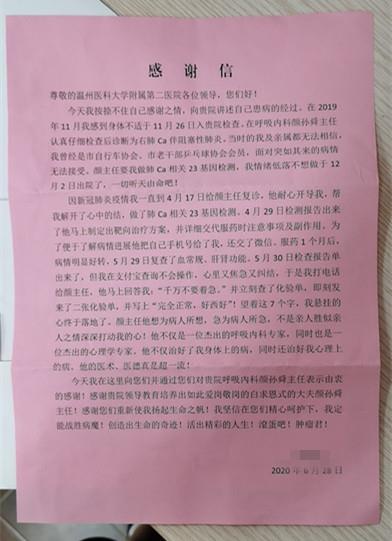 感 谢 信
尊敬的温州医科大学附属第二医院各位领导，您们好！
今天我按捺不住自己感谢之情，向贵院讲述自己患病的经过。在 2019
年 11 月我感到身体不适于 11 月 26 日入贵院检查。在呼吸内科颜孙舜主任
认真仔细检查后诊断为右肺 Ca 伴阻塞性肺炎。当时的我及亲属都无法相信，
我曾经是市自行车协会、市老干部乒乓球协会会员，面对突如其来的病情
无法接受。颜主任要我做肺 Ca 相关 23 基因检测，我情绪低落不想做于 12
月 2 日出院了，一切听天由命吧！
因新冠肺炎疫情我一直到 4 月 17 日给颜主任复诊，他耐心开导我，帮
我解开了心中的结，做了肺 Ca 相关 23 基因检测。4 月 29 日检测报告出来
了他马上制定出靶向治疗方案，并详细交代服药时注意事项及副作用。为
了便于了解病情进展他把自己手机号给了我，还交了微信。服药 1 个月后，
病情明显好转，5 月 29 日复查了血常规、肝肾功能。5 月 30 日检查报告单
出来了，但我在支付宝查询不会操作，心里又焦急又纠结，于是我打电话
给颜主任，他马上回答我：“千万不要着急。”并立刻查了化验单，即刻发
来了二张化验单，并写上“完全正常，好西好”！望着这 7 个字，我悬挂的
心终于落地了。颜主任他想为病人所想，急为病人所急，不是亲人胜似亲
人之情深深打动我的心！他不仅是一位杰出的呼吸内科专家，同时也是一
位杰出的心理学专家，他不仅治好了我身体上的病，同时还治好我心理上
的病，他的医术、医德真是超一流！
今天我在这里向您们并通过您们对贵院呼吸内科颜孙舜主任表示由衷
的感谢！感谢贵院领导教育培养出如此爱岗敬岗的白求恩式的大夫颜孙舜
主任！感谢您们重新使我扬起生命之帆！我坚信在您们精心呵护下，我定
能战胜病魔！创造出生命的奇迹！活出精彩的人生！滚蛋吧！肿瘤君！
2020 年 6 月 28 日